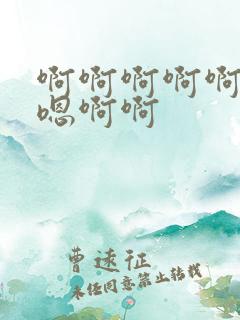 啊啊啊啊啊
嗯啊啊
曹远征
未经同意禁止转载